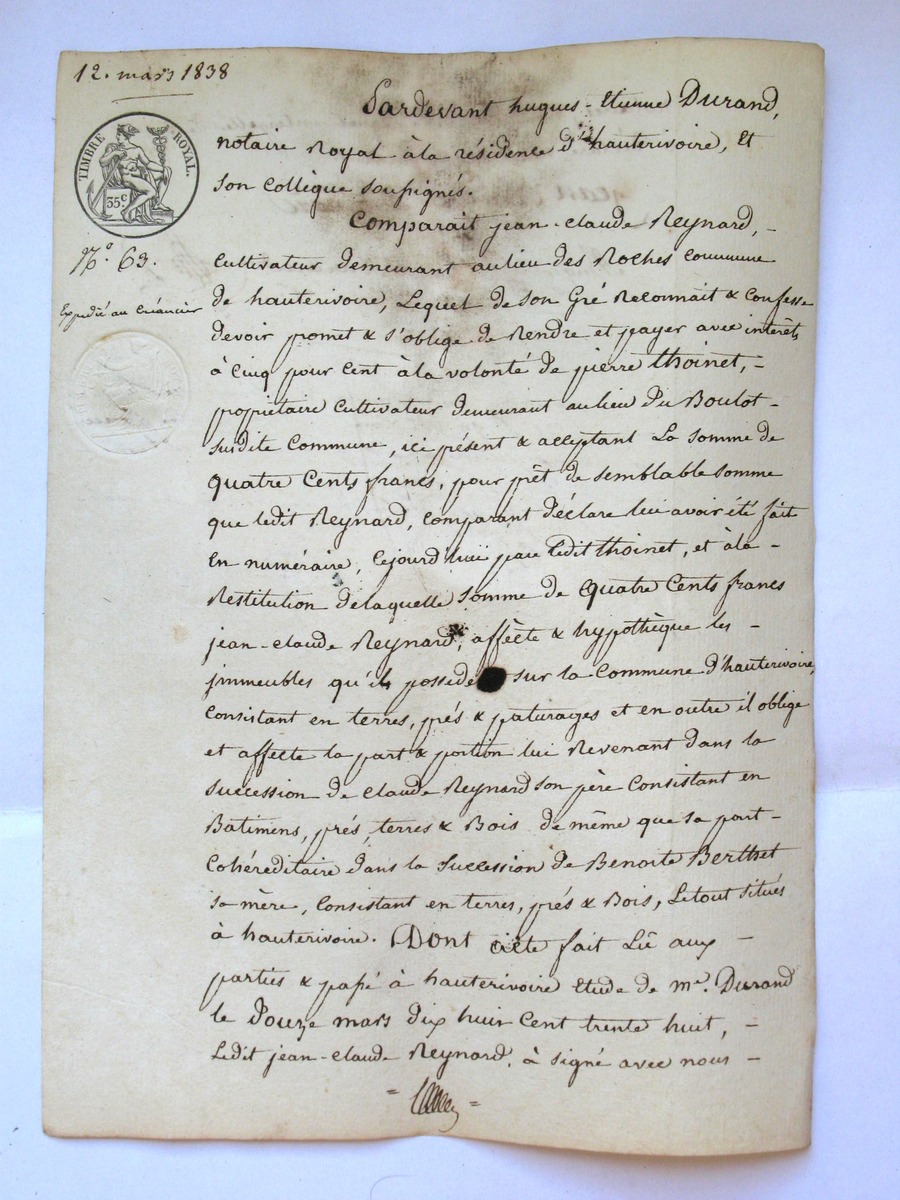 12. mars 1838
Pardevant hugues-Etienne Durand,
notaire Royal à la résidence d'hauterivoire, Et
son Collègue soussignés.
TIMBRE ROYAL.
35.c
Comparait jean-claude Reynard, -
N.o 63.
Cultivateur demeurant au lieu des Roches commune
Expédié au Créancier
de hauterivoire, Lequel de son Gré Reconnait & confesse
devoir promet & s'oblige de Rendre et payer avec intérêts
à Cinq pour Cent à la volonté de pierre thoinet, -
propriétaire Cultivateur demeurant au lieu Du Boulot -
susdite Commune, ici présent & acceptant La somme de
quatre Cents francs, pour prêt de semblable somme
que ledit Reynard, Comparant déclare lui avoir été fait
En numéraire, Cejourd'hui par Ledit thoinet, et à la -
Restitution de laquelle somme de quatre Cents francs
jean-claude Reynard, affècte & hypothèque les -
jmmeubles qu'il possède sur la Commune d'hauterivoire,
Consistant en terres, prés & paturages et en outre il oblige
et affecte la part & portion lui Revenant dans la
succession de claude Reynard son père Consistant en
Batimens, prés, terres & Bois de même que sa part -
Cohéreditaire dans la succession de Benoite Berthet
sa mère, Consistant en terres, prés & Bois, Le tout situés
à hauterivoire. Dont acte fait Lû aux -
parties & passé à hauterivoire Etude de me. Durand
le Douze mars dix huit cent trente huit, -
Ledit jean-claude Reynard, à signé avec nous -